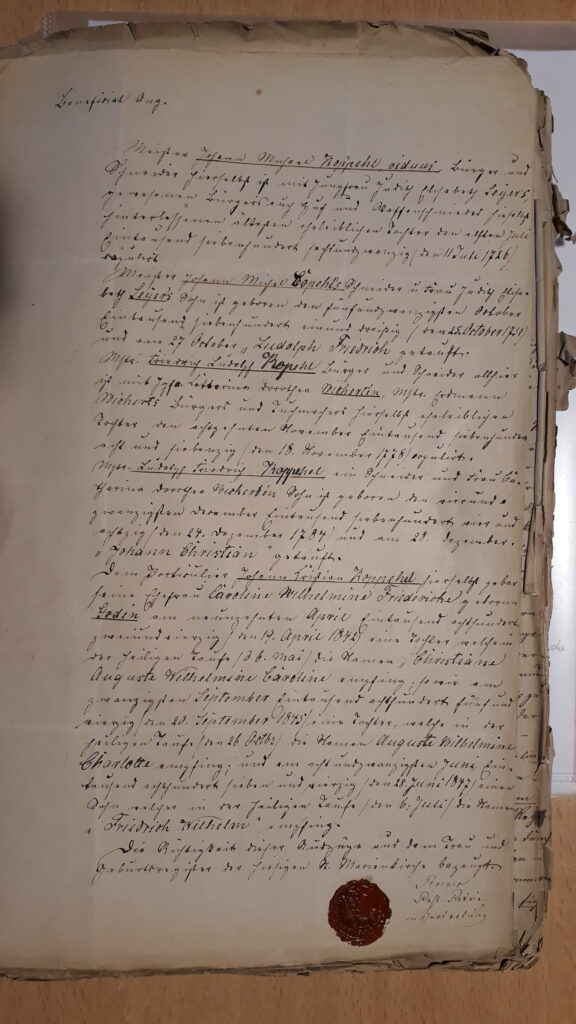 Beneficial Ang.
Meister Johann Michael Koppehl viduus, Bürger und
Schneider hierselbst ist mit Jungfrau Judith Elisabeth Leyers
gewesenen Bürgers auch Huf und Waffenschmied hieselbst
hinterlassenen ältesten eheleiblichen Tochter den elften Juli
Eintausend siebenhundert sechsundzwanzig /den 11 Juli 1726/
copulirt
Meister Johann Michel Copehl's Schneider u Frau Judith Elisa-
beth Leyer's Sohn ist geboren den fünfundzwanzigsten October
Eintausend siebenhundert einund dreißig / den 25. October
und am 27 October „Ludolph Friedrich getauft.
Mstr. Friedrich Ludolf Kopehl Bürger und Schneider allhier
ist mit dorothea Wichertin, Mstr. Erdmann
Wicherts Bürgers und Tuchmachers hierselbst eheleiblichen
Tochter den achtzehnten November Eintausend siebenhundert
acht und siebenzig / den 18. November 1778 / copulirt.
Mstr. Ludolf Friedrich Koppehel ein Schneider und Frau Ca-
tharina dorothea Wichertin Sohn ist geboren den vierund-
zwanzigsten December Eintausend siebenhundert vier und
achtzig / den 24. Dezember 1784 / und am 28. dezember.
„Johann Christian" getauft.
Dem Particulier Johann Kristian Koppehel hierselbst gebar
seine Ehefrau Caroline Wilhelmine Friedericke geborne
Bodin am neunzehnten April Eintausend achthundert
zweiundvierzig / den 19. April 1842 / eine Tochter welche in
der heiligen Taufe / d 6. Mai / die Namen „Christiane
Auguste Wilhelmine Caroline empfing; sowie am
zwanzigsten September Eintausend achthundert fünf und
vierzig / den 20. September 1845 / eine Tochter, welche in der
heiligen Taufe / den 26 Octbr / die Namen Auguste Wilhelmine
Charlotte empfing; und am acht undzwanzigsten Juni Ein-
tausend achthundert sieben und vierzig / den 28. Juni 1847 / einen
Sohn welcher in der heiligen Taufe / den 6. Juli / die Namen
„Friedrich Wilhelm" empfing.
Die Richtigkeit dieser Auszüge aus dem Trau und
Geburtsregister der hiesigen St. Marienkirche bezeugt